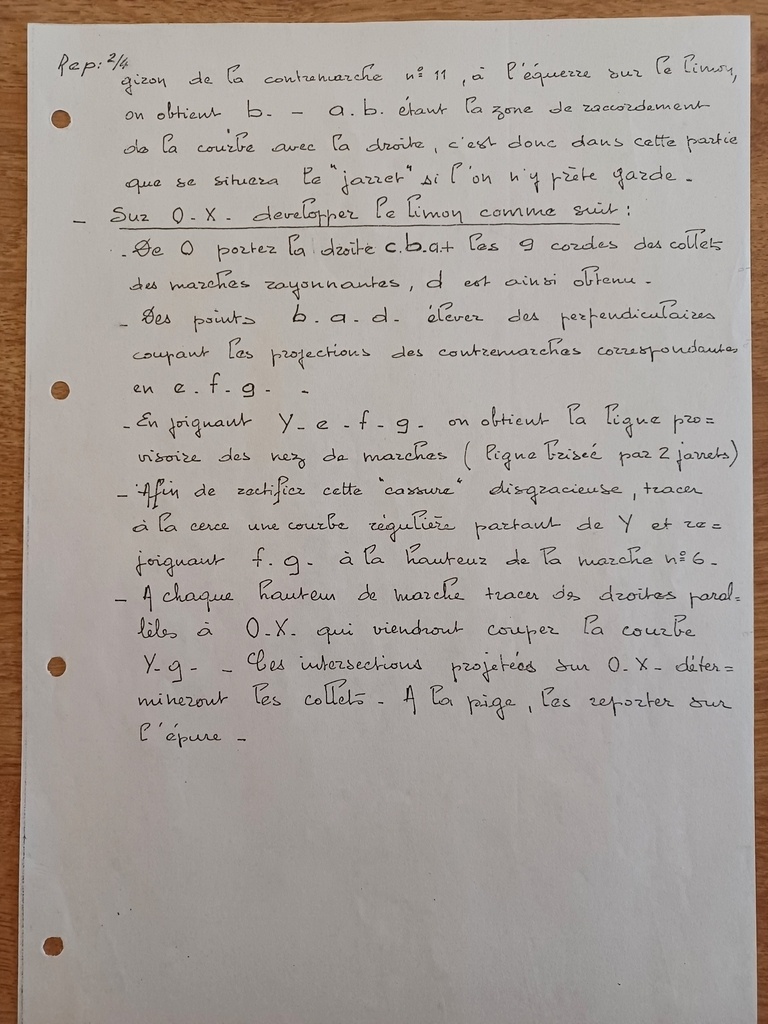 Rep: 2/4
giron de la contremarche n° 11, à l'équerre sur le limon,
on obtient b. - a.b. étant la zone de raccordement
de la courbe avec la droite, c'est donc dans cette partie
que se situera le "jarret" si l'on n'y prète garde.
- Sur O-X. developper le limon comme suit :
. De O portez la droite c.b.a+ les 9 cordes des collets
des marches rayonnantes, d est ainsi obtenu.
- Des points b. a. d. élever des perpendiculaires
coupant les projections des contremarches correspondantes
en e. f. g. -
- En joignant Y-e-f-g. on obtient la ligne pro=
visoire des nez de marches ( ligne brisée par 2 jarrets)
- Afin de rectifier cette "cassure" disgracieuse, tracer
à la cerce une courbe régulière partant de Y et re=
joignant f. g. à la hauteur de la marche n° 6.
- A chaque hauteur de marche tracer des droites paral=
lèles à O.X. qui viendront couper la courbe
Y-g. - Les intersections projetées sur O.X. déter=
mineront les collets - A la pige, les reporter sur
l'épure -